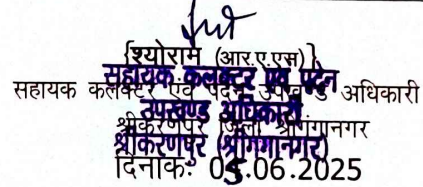 {श्योराम (आर.ए.एस)}
सहायक कलक्टर एवं पदेन
सहायक कलक्टर एवं पदेन उपखण्ड अधिकारी
उपखण्ड अधिकारी
श्रीकरणपुर जिला श्रीगंगानगर
श्रीकरणपुर (श्रीगंगानगर)
दिनांकः 05.06.2025